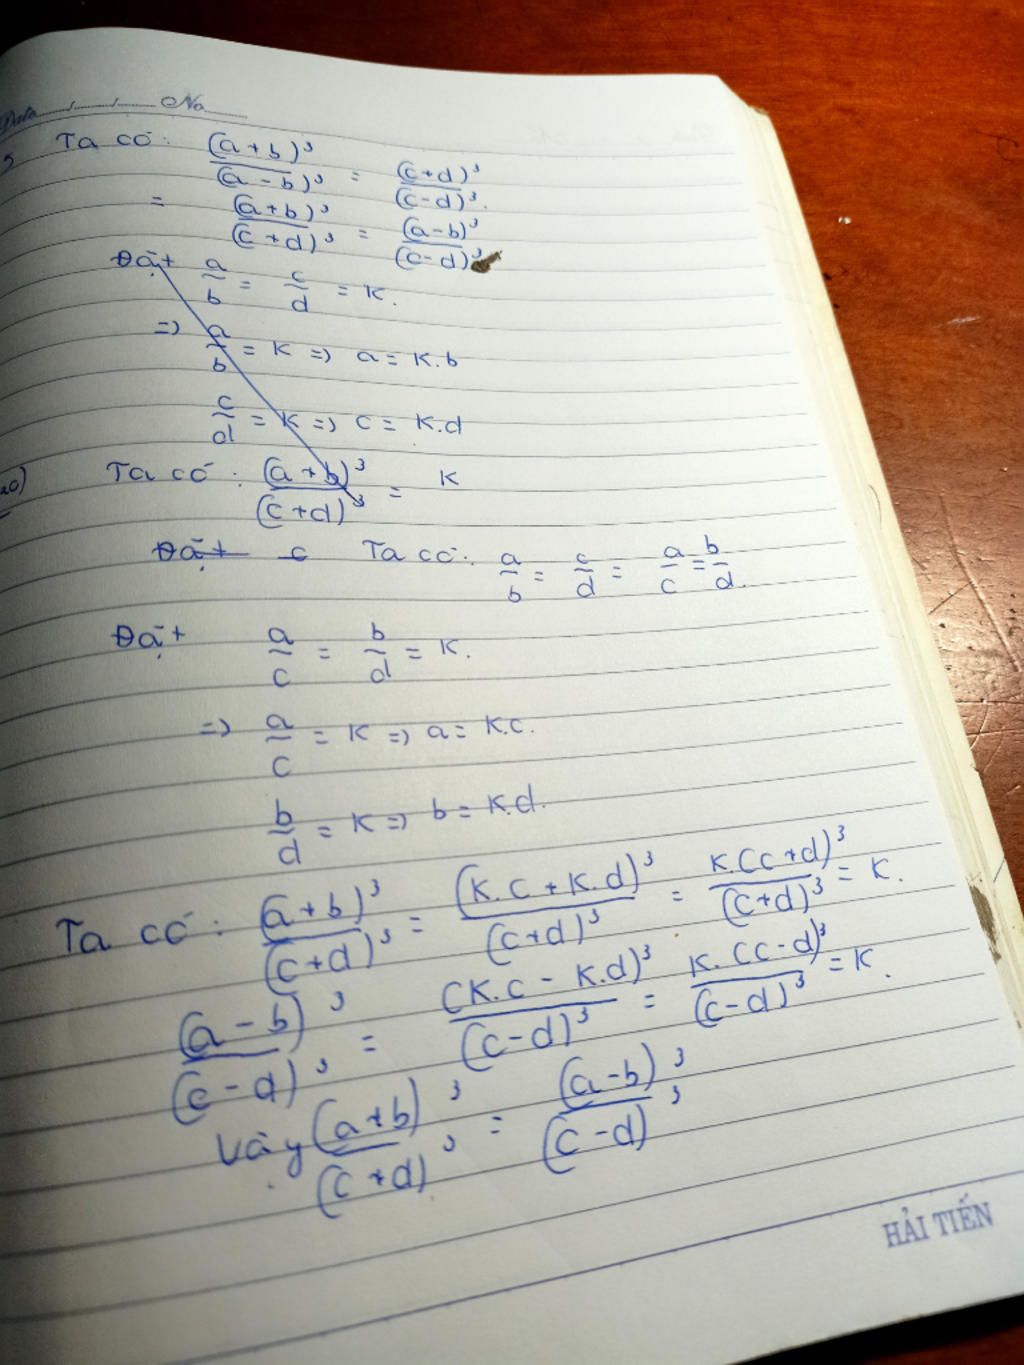 Date ...../...../..... No.........
Ta có: (a+b)³/(a-b)³ = (c+d)³/(c-d)³.
= (a+b)³/(c+d)³ = (a-b)³/(c-d)³
Đặt a/b = c/d = K.
=> a/b = K => a = K.b
c/d = K => c = K.d
Ta có: (a+b)³/(c+d)³ = K
Đặt c Ta có: a/b = c/d = a/c = b/d.
Đặt a/c = b/d = K.
=> a/c = K => a = K.c.
b/d = K => b = K.d.
Ta có: (a+b)³/(c+d)³ = (K.c+K.d)³/(c+d)³ = K.(c+d)³/(c+d)³ = K.
(a-b)³/(c-d)³ = (K.c-K.d)³/(c-d)³ = K.(c-d)³/(c-d)³ = K.
Vậy (a+b)³/(c+d)³ = (a-b)³/(c-d)³
HẢI TIẾN